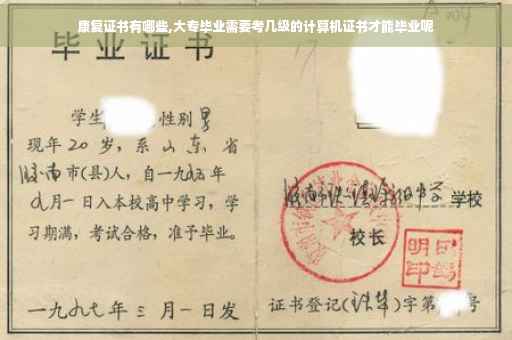 康复证书有哪些,大专毕业需要考几级的计算机证书才能毕业呢
毕业证书
学生 性别男
现年20岁,系山东 省
济南市(县)人,自一九九五年
九月一日入本校高中学习,学
习期满,考试合格,准予毕业。
一九九七年三月一日发
学校
校长
证书登记( )字第 号